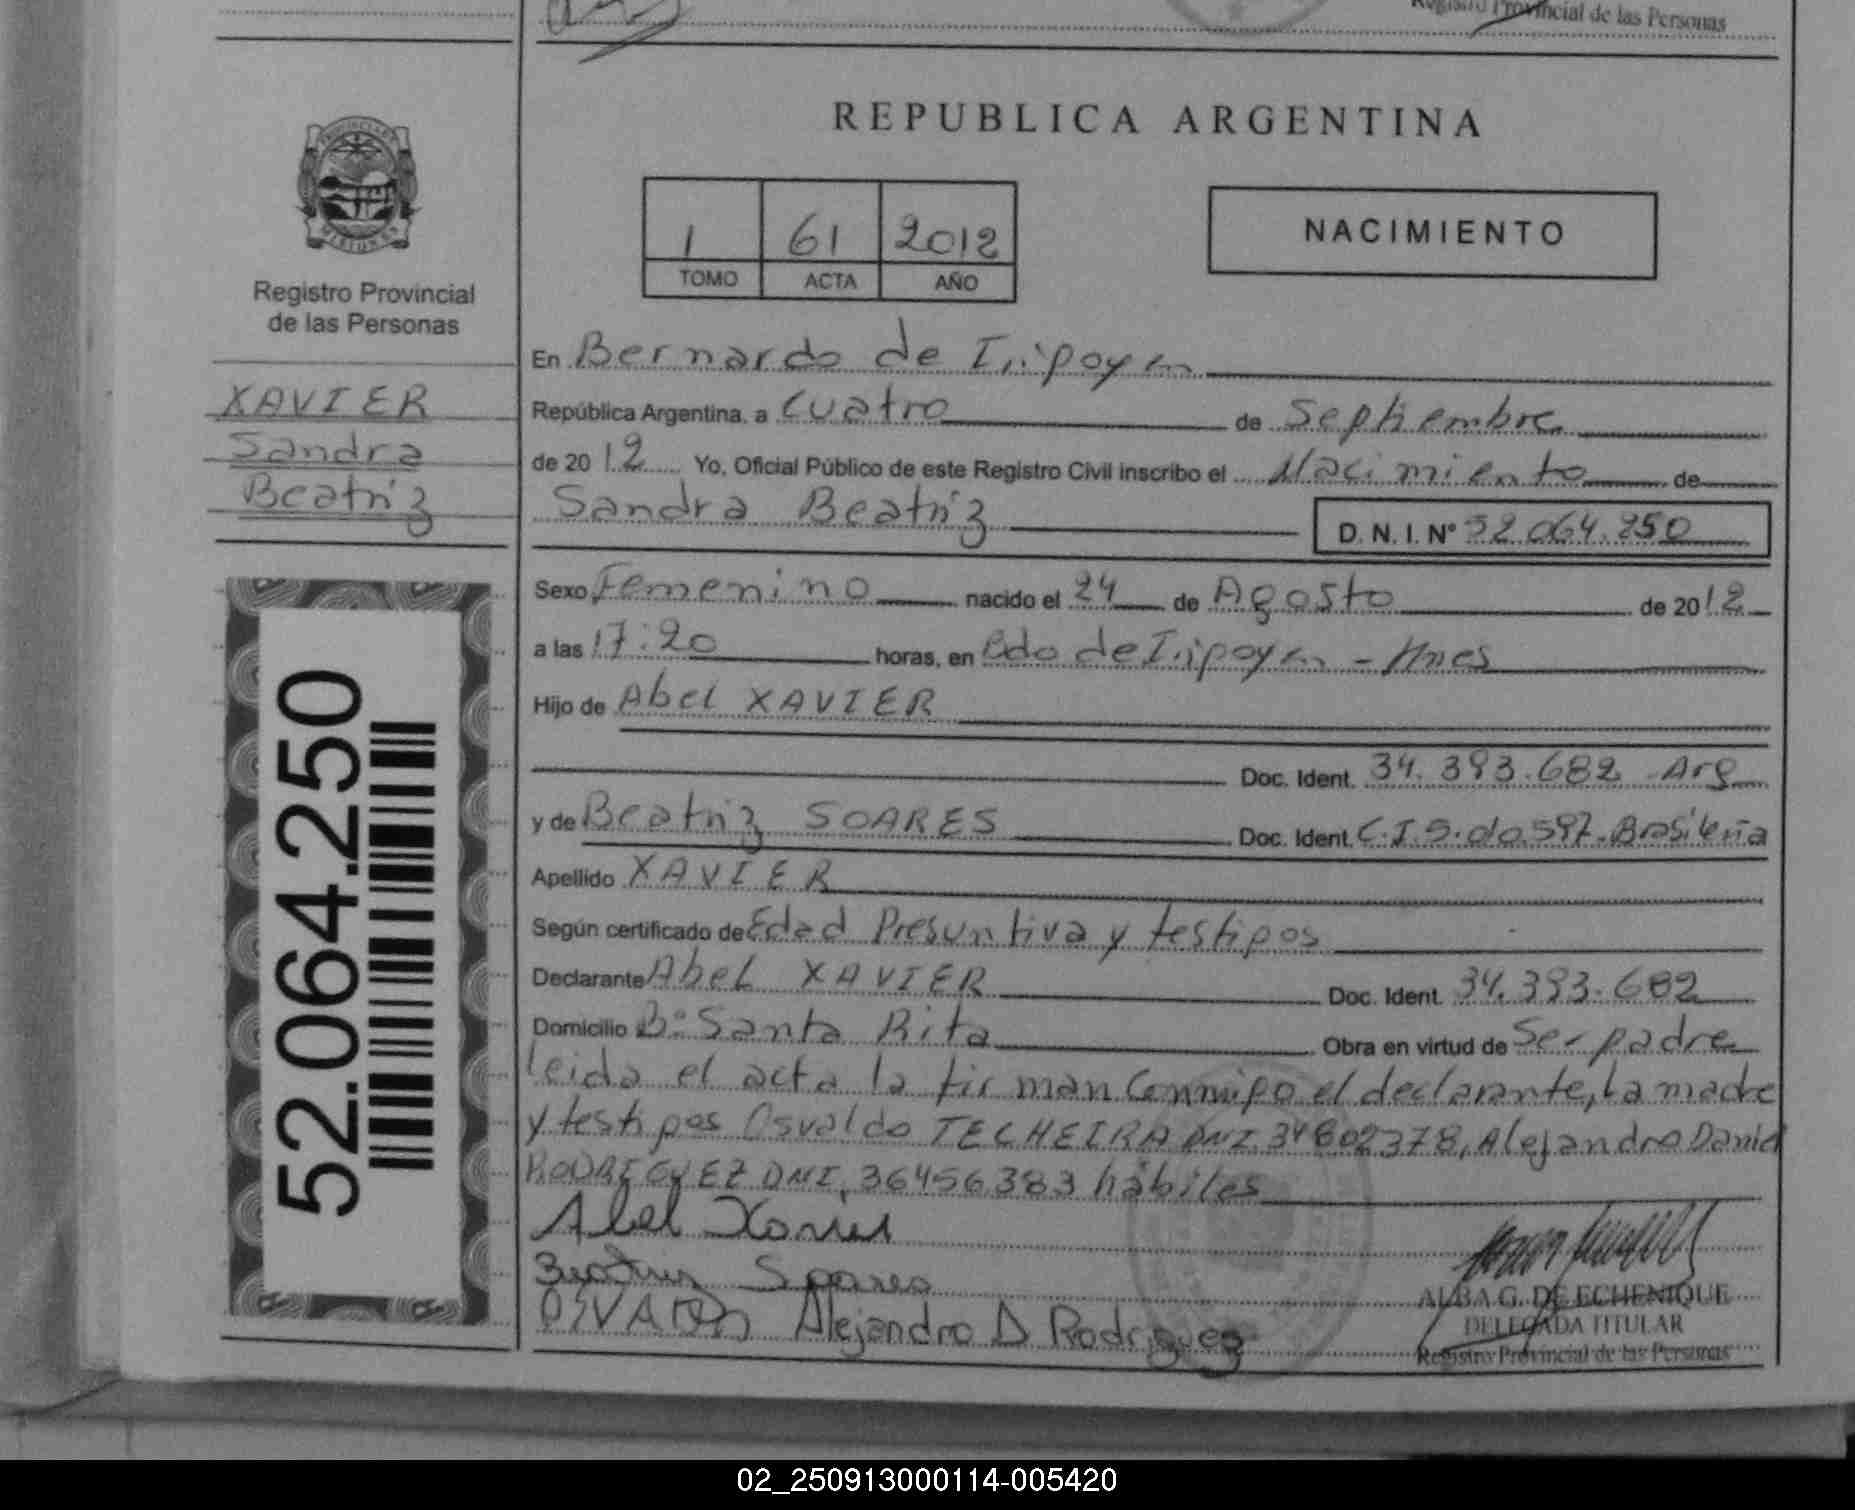 Registro Provincial de las Personas
REPUBLICA ARGENTINA
PROVINCIA DE
MISIONES
Registro Provincial
de las Personas
XAVIER
Sandra
Beatriz
52.064.250
1 61 2012
TOMO ACTA AÑO
NACIMIENTO
En Bernardo de Irigoyen
República Argentina, a Cuatro de Septiembre
de 2012 Yo, Oficial Público de este Registro Civil inscribo el Nacimiento de
Sandra Beatriz D. N. I. Nº 52.064.250
Sexo Femenino nacido el 24 de Agosto de 2012
a las 17:20 horas, en Bdo de Irigoyen - Mnes
Hijo de Abel XAVIER
Doc. Ident. 34.393.682 Arg
y de Beatriz SOARES Doc. Ident. C.I.5.do.597. Brasileña
Apellido XAVIER
Según certificado de Edad Presuntiva y testigos
Declarante Abel XAVIER Doc. Ident. 34.393.682
Domicilio Bº Santa Rita Obra en virtud de Ser padre
leida el acta la firman Conmigo el declarante, La madre
y testigos Osvaldo TECHEIRA DNI 34802378, Alejandro Daniel
RODRIGUEZ DNI. 36456383 hábiles
Abel Xavier
Beatriz Soares
Alejandro D Rodriguez
ALBA G. DE ECHENIQUE
DELEGADA TITULAR
Registro Provincial de las Personas
02_250913000114-005420